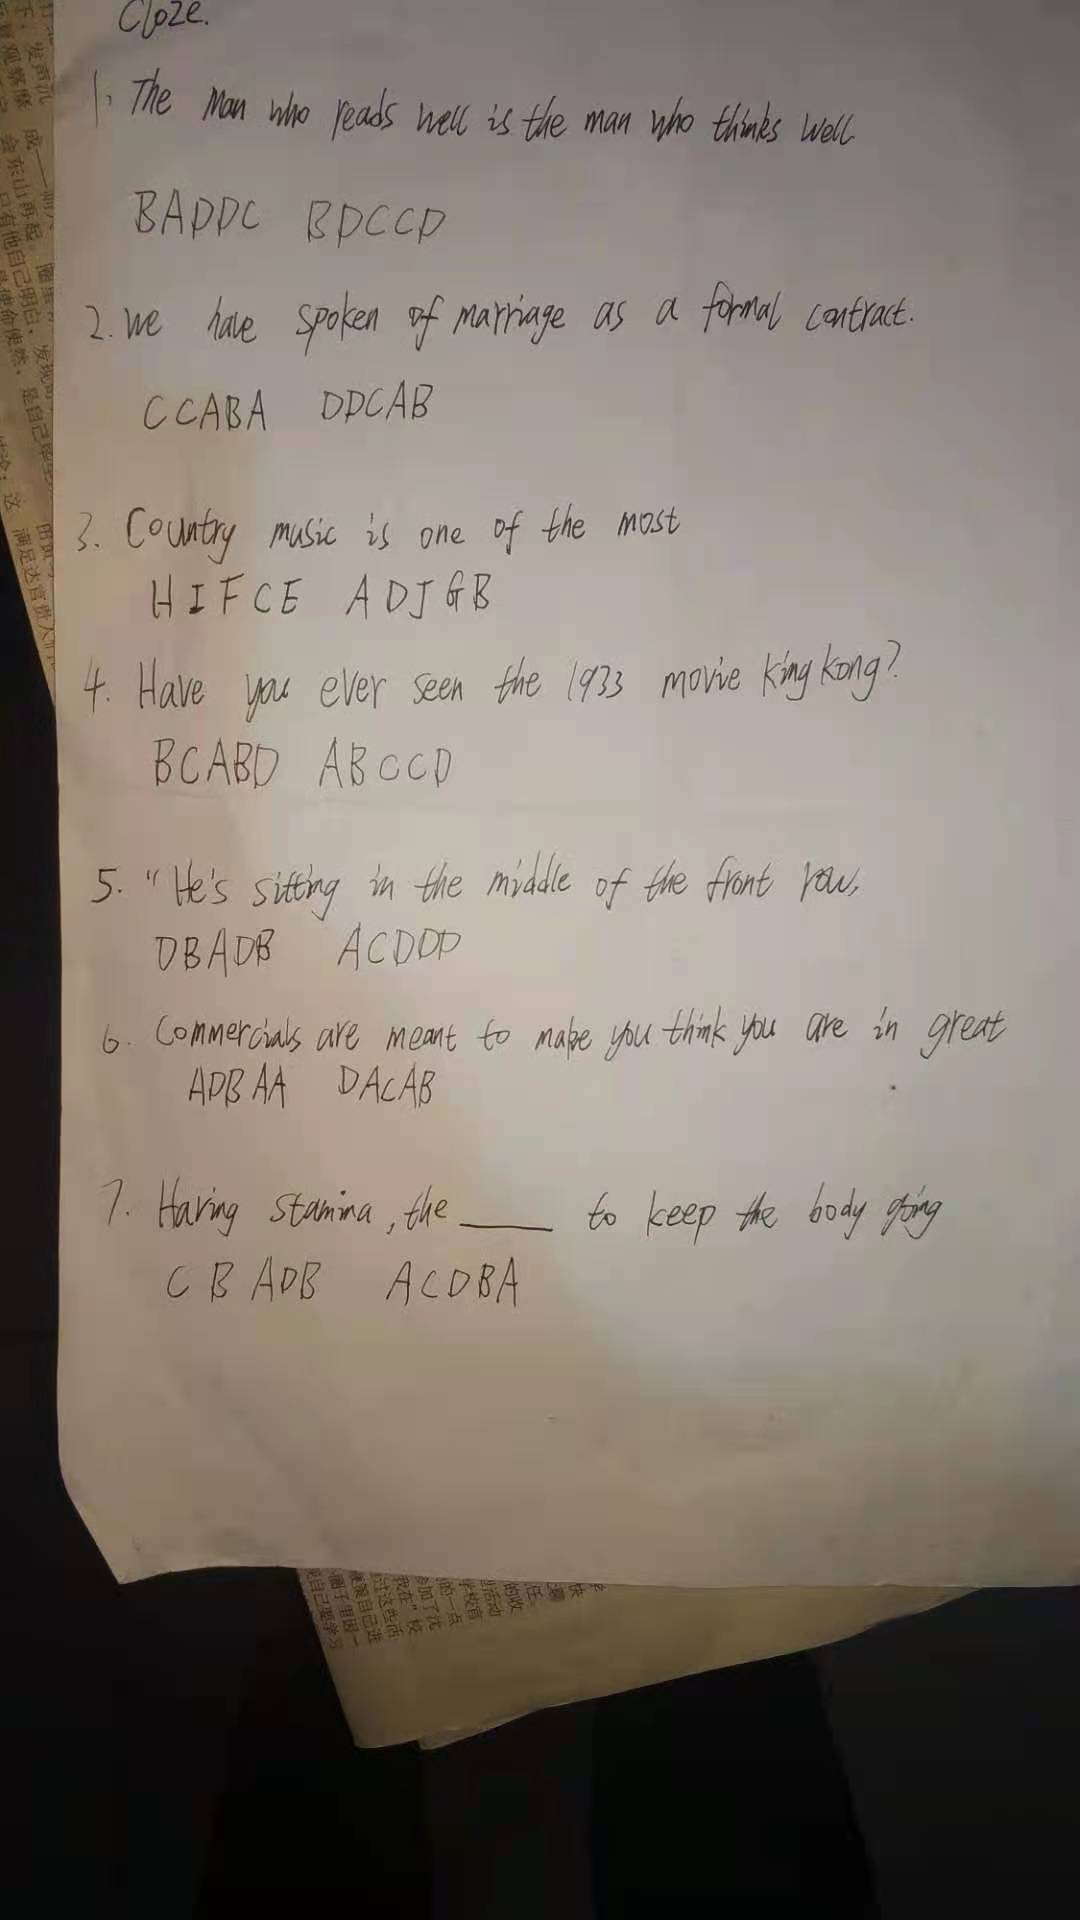 Cloze.
1. The man who reads well is the man who thinks well
BADDC BDCCD
2. We have spoken of marriage as a formal contract.
CCABA DDCAB
3. Country music is one of the most
HIFCE ADJGB
4. Have you ever seen the 1933 movie King kong?
BCABD ABCCD
5. "He's sitting in the middle of the front row,
DBADB ACDDD
6. Commercials are meant to make you think you are in great
ADBAA DACAB
7. Having stamina, the ____ to keep the body going
CBADB ACDBA